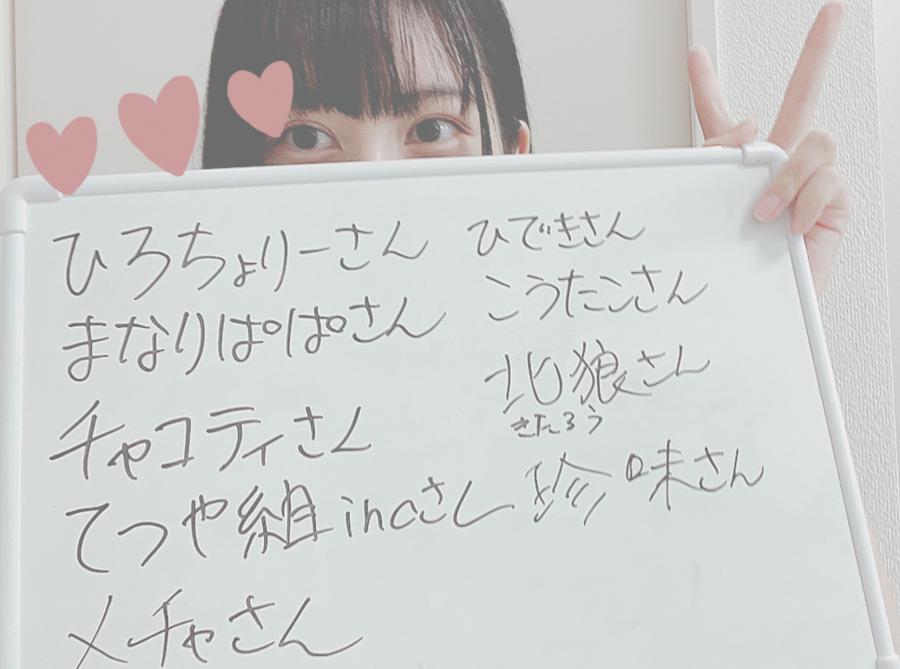 ひろちょりーさん
まなりぱぱさん
チャコティさん
てつや組incさん
メチャさん
ひできさん
こうたこさん
北狼さん
きたろう
珍味さん